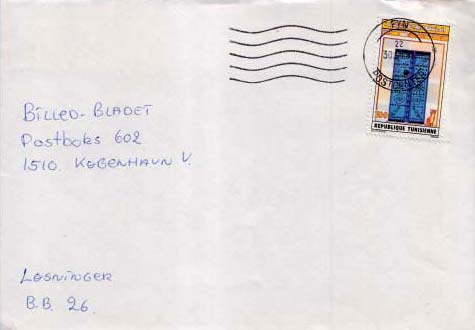 FYN
22
30
BILLED-BLADET
Postboks 602
1510 KØBENHAVN V.
REPUBLIQUE TUNISIENNE
Løsninger
B.B. 26.